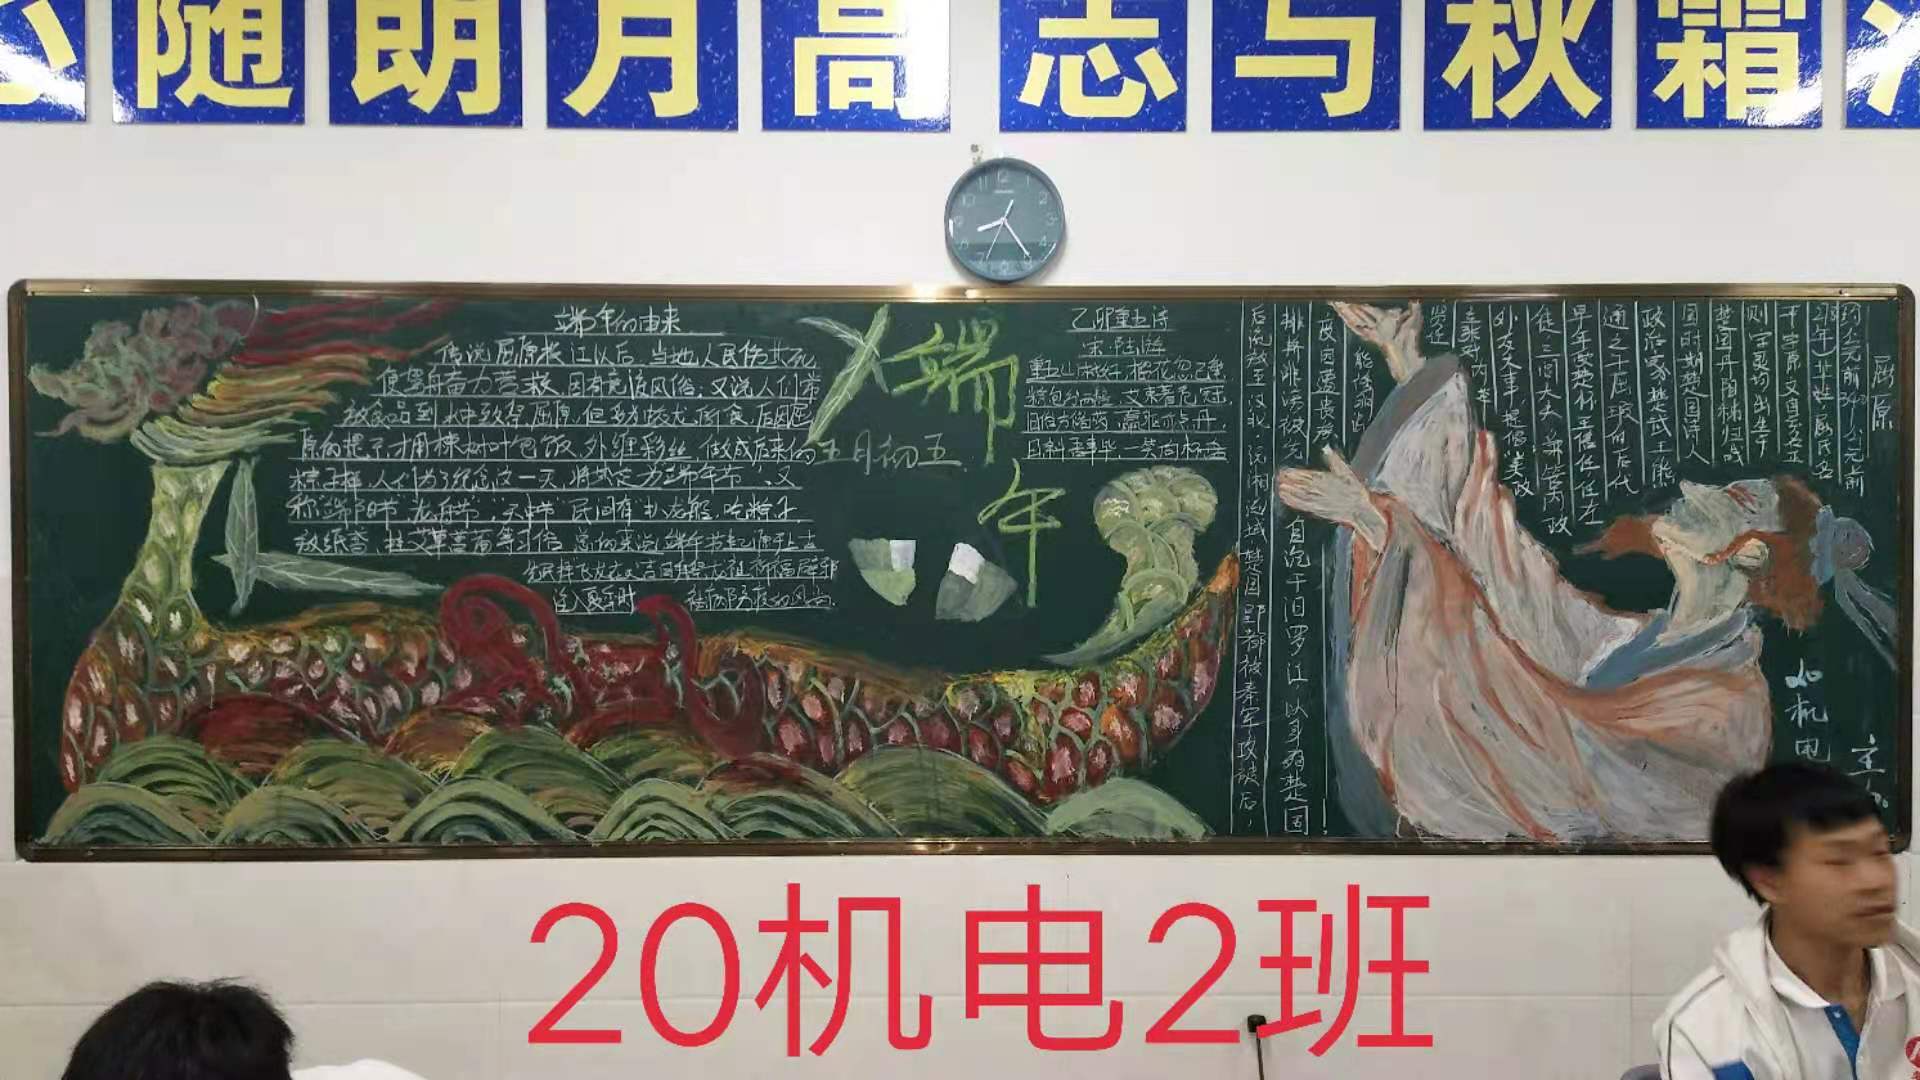 随朗月高 志与秋霜
端午的由来
传说屈原投江以后,当地人民伤其死,
便驾舟奋力营救,因有竞渡风俗;又说人们常
放食品到水中致祭屈原,但多为蛟龙所食,后因屈
原的提示才用楝树叶包饭,外缠彩丝,做成后来的
粽子样,人们为了纪念这一天,将其定为端午节,又
称端阳节,龙舟节,天中节,民间有扒龙船,吃粽子,
放纸鸢,挂艾草菖蒲等习俗,总的来说,端午节起源于上古
先民择"飞龙在天"吉日拜祭龙祖祈福辟邪
注入夏至时 祛病防疫的风尚.
端
午
五月初五
乙卯重五诗
宋·陆游
重五山村好,榴花忽已繁.
粽包分两髻,艾束著危冠.
旧俗方储药,羸躯亦点丹.
日斜吾事毕,一笑向杯盘
屈原
约公元前340-公元前
278年)芈姓,屈氏名
平字原又自云名正
则字灵均出生于
楚国丹阳秭归战
国时期楚国诗人
政治家,楚武王熊
通之子屈瑕的后代
早年受楚怀王信任任左
徒、三闾大夫,兼管内政
外交大事,提倡"美政
主张对内举
贤任
能,修明法
度因遭贵族
排挤诽谤被先
后流放至汉北,沅湘流域楚国郢都被秦军攻破后,
自沉于汨罗江,以身殉楚国!
机电
20机电2班